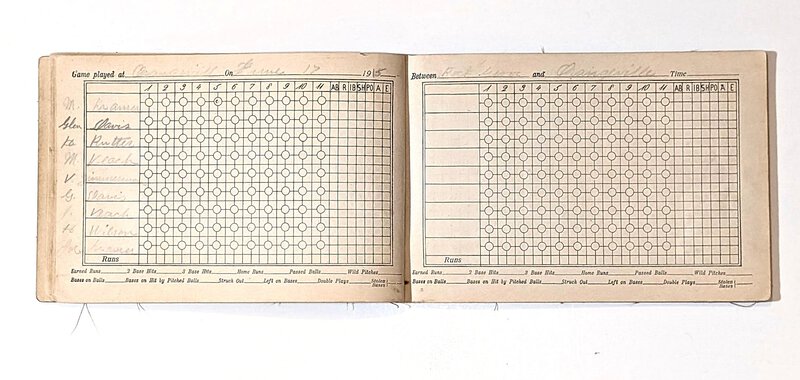 Game played at On June 17 1915
1 2 3 4 5 6 7 8 9 10 11 AB R 1B SH PO A E
M. Kramer
Glen Davis
H.
M. Keach
V.
G. Davis
Keach
H. Wilson
Runs
Earned Runs 2 Base Hits 3 Base Hits Home Runs Passed Balls Wild Pitches
Bases on Balls Bases on Hit by Pitched Balls Struck Out Left on Bases Double Plays Stolen Bases
Between and Orangeville Time
1 2 3 4 5 6 7 8 9 10 11 AB R 1B SH PO A E
Runs
Earned Runs 2 Base Hits 3 Base Hits Home Runs Passed Balls Wild Pitches
Bases on Balls Bases on Hit by Pitched Balls Struck Out Left on Bases Double Plays Stolen Bases